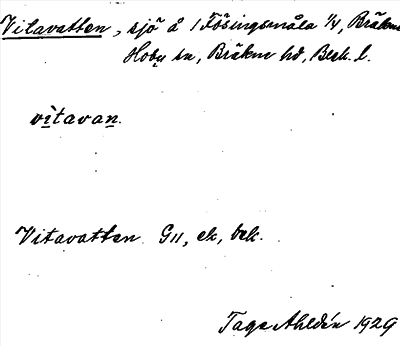 Vitavatten, sjö å 1 Fösingsmåla 1/4, Bräkne
Hoby sn, Bräkne hd, Blek. l.
vìtavan.
Vitavatten G11, ek, bek.
Tage Ahldén 1929